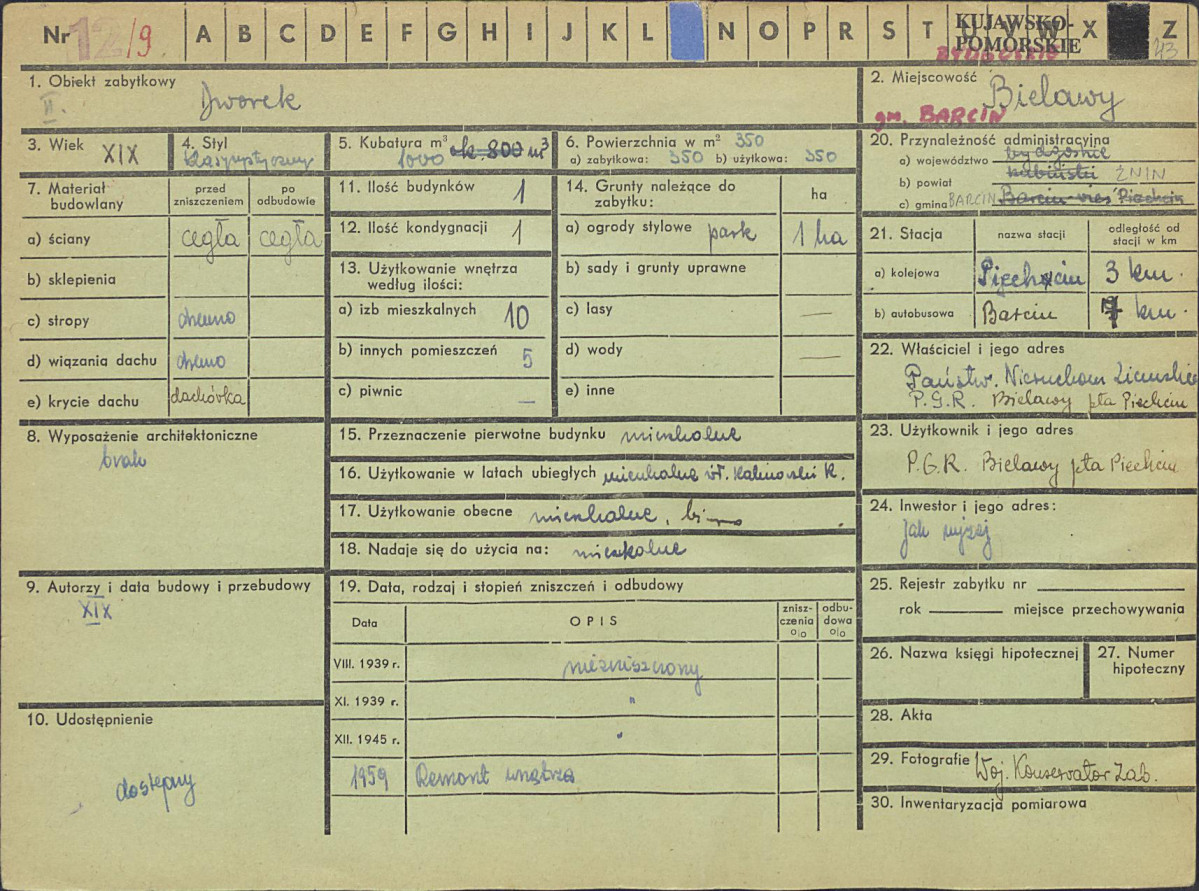 Nr 12/9. A B C D E F G H I J K L N O P R S T U V W X Z
KUJAWSKO-
POMORSKIE
BYDGOSKIE
43
1. Obiekt zabytkowy
II.
Dworek
2. Miejscowość
Bielawy
gm. BARCIN
3. Wiek XIX
4. Styl
klasycystyczny
5. Kubatura m³
1000 ok. 800 m³
6. Powierzchnia w m² 350
a) zabytkowa: 350 b) użytkowa: 350
7. Materiał budowlany
przed zniszczeniem
po odbudowie
a) ściany cegła cegła
b) sklepienia
c) stropy drewno
d) wiązania dachu drewno
e) krycie dachu dachówka
8. Wyposażenie architektoniczne
brak
9. Autorzy i data budowy i przebudowy
XIX
10. Udostępnienie
dostępny
11. Ilość budynków 1
12. Ilość kondygnacji 1
13. Użytkowanie wnętrza
według ilości:
a) izb mieszkalnych 10
b) innych pomieszczeń 5
c) piwnic —
14. Grunty należące do
zabytku:
ha
a) ogrody stylowe park 1 ha
b) sady i grunty uprawne
c) lasy —
d) wody —
e) inne
15. Przeznaczenie pierwotne budynku mieszkalne
16. Użytkowanie w latach ubiegłych mieszkalne wł. Kalinowski K.
17. Użytkowanie obecne mieszkalne, biuro
18. Nadaje się do użycia na: mieszkalne
19. Data, rodzaj i stopień zniszczeń i odbudowy
Data OPIS znisz-czenia o/o odbu-dowa o/o
VIII. 1939 r. niezniszczony
XI. 1939 r. "
XII. 1945 r. "
1959 Remont wnętrza
20. Przynależność administracyjna
a) województwo bydgoskie
b) powiat ŻNIN
c) gmina BARCIN Barcin wieś Piechcin
21. Stacja
nazwa stacji
odległość od stacji w km
a) kolejowa Piechcin 3 km.
b) autobusowa Barcin 7 km.
22. Właściciel i jego adres
Państw. Nieruchom. Ziemskie
P.G.R. Bielawy pta Piechcin
23. Użytkownik i jego adres
P.G.R. Bielawy pta Piechcin
24. Inwestor i jego adres:
Jak wyżej
25. Rejestr zabytku nr
rok miejsce przechowywania
26. Nazwa księgi hipotecznej
27. Numer
hipoteczny
28. Akta
29. Fotografie Woj. Konserwator Zab.
30. Inwentaryzacja pomiarowa